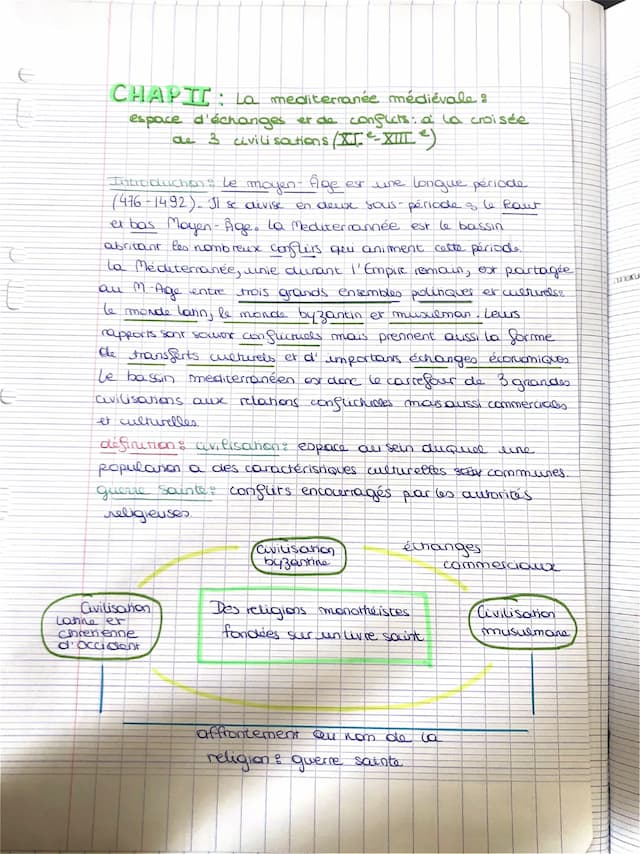 CHAP II : La mediterranée médiévale :
espace d'échanges et de conflits : à la croisée
de 3 civilisations (XI e - XIII e)
Introduction : Le moyen-Âge est une longue période
(476-1492). Il se divise en deux sous-période : le haut
et bas Moyen-Âge. La Mediterrannée est le bassin
abritant les nombreux conflits qui animent cette période.
La Méditerranée, unie durant l'Empire romain, est partagée
au M-Age entre trois grands ensembles politiques et culturels :
le monde latin, le monde byzantin et musulman. Leurs
rapports sont souvent conflictuels mais prennent aussi la forme
de transferts culturels et d'importants échanges économiques
Le bassin mediterranéen est donc le carrefour de 3 grandes
civilisations aux relations conflictuelles mais aussi commerciales
et culturelles.
définition : civilisation : espace au sein duquel une
population a des caractéristiques culturelles communes.
guerre sainte : conflits encourragés par les autorités
religieuses.
civilisation
byzantine
échanges
commerciaux
Civilisation
latine et
chretienne
d'occident
Des religions monothéistes
fondées sur un livre saint
Civilisation
musulmane
affrontement au nom de la
religion : guerre sainte